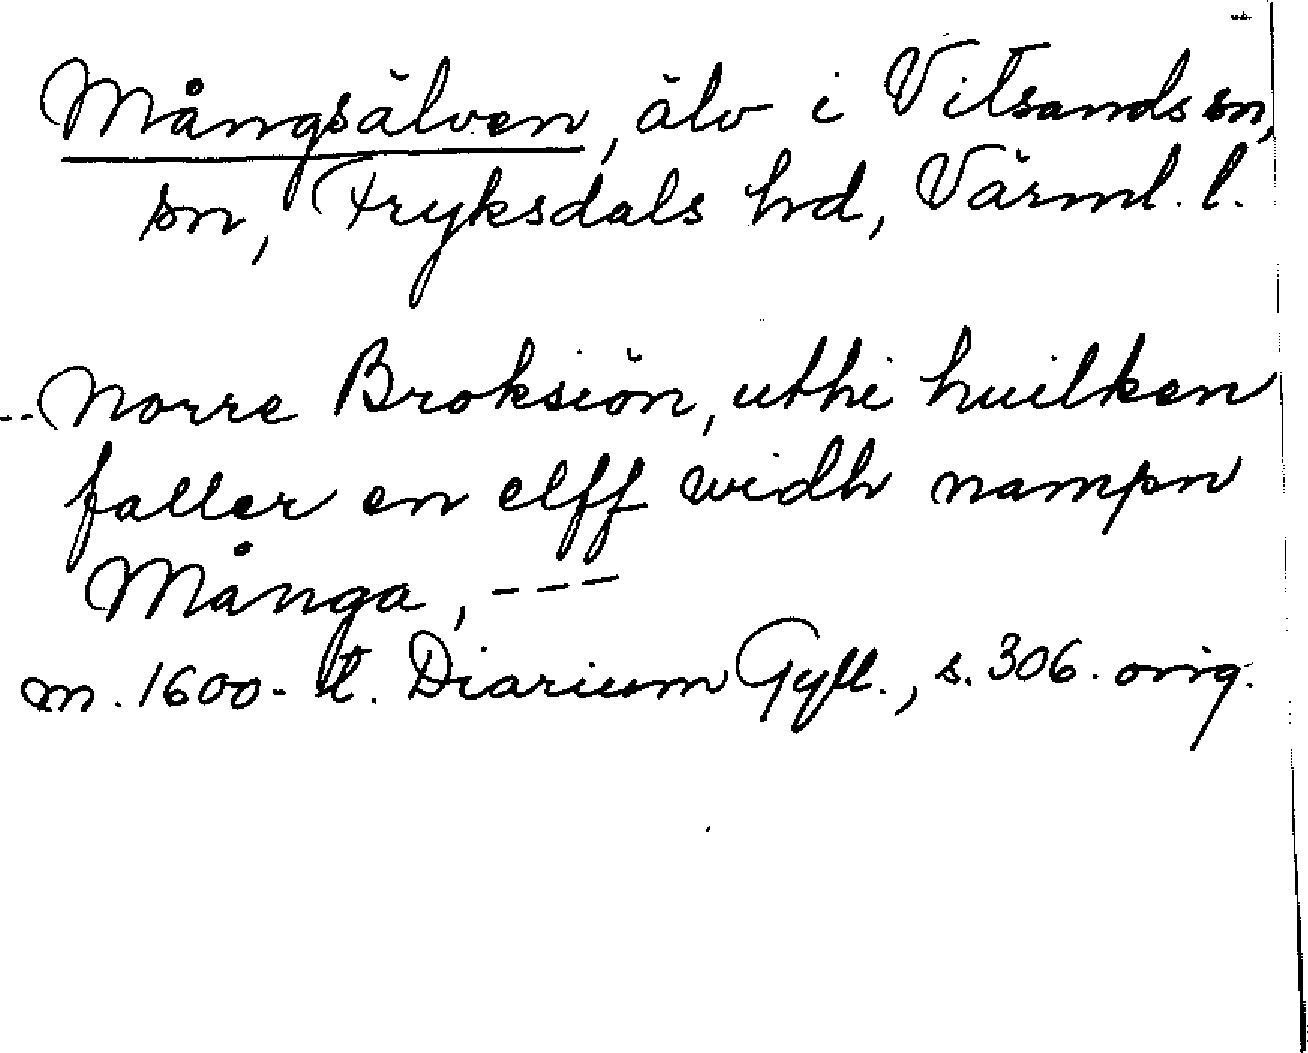 Mångsälven, älv i Vitsands sn,
sn, Fryksdals hd, Värml. l.
--Norre Broksiön, uthi huilken
faller en elff widh nampn
Många, ---
m. 1600-t. Diarium Gyll., s. 306. orig.